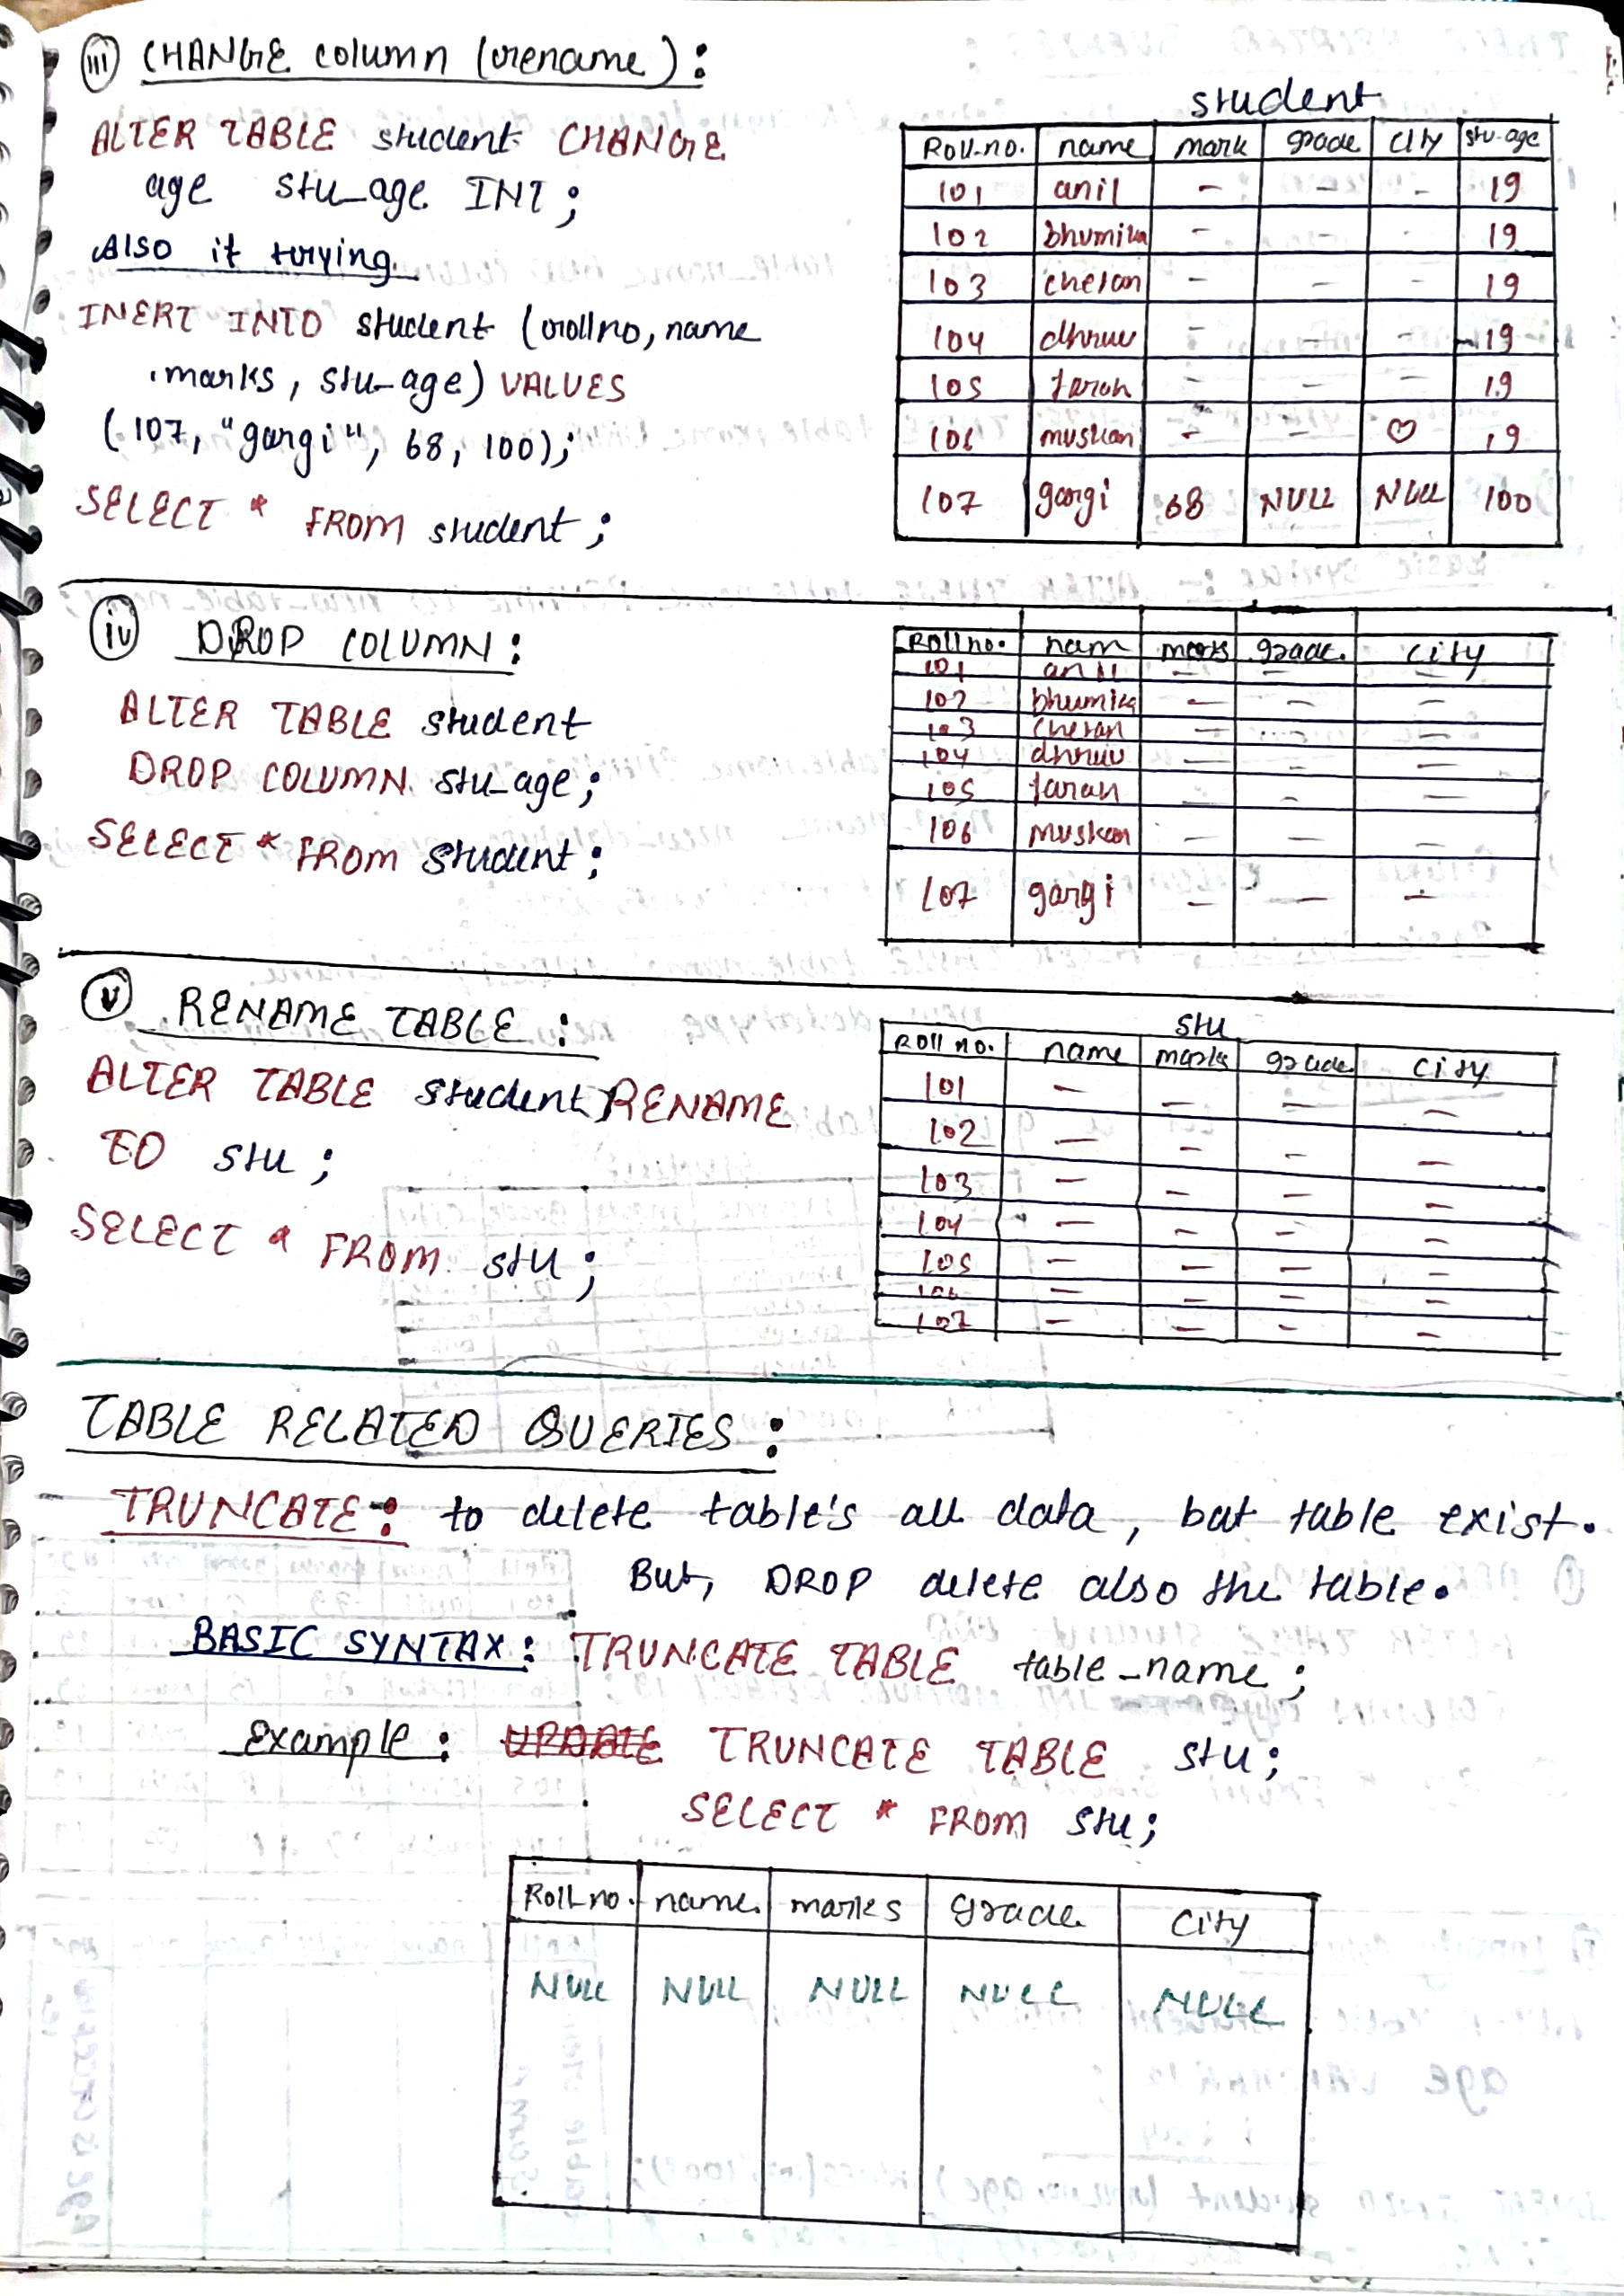 iii CHANGE column (rename):
ALTER TABLE student CHANGE
age stu_age INT;
Also it trying
INERT INTO student (rollno, name
marks, stu-age) VALUES
(107, "gargi", 68, 100);
SELECT * FROM student;
student
Roll-no. name mark grade city stu-age
101 anil - - - 19
102 bhumika - - - 19
103 chetan - - - 19
104 dhruv - - - 19
105 farah - - - 19
106 muskan - - ♡ 19
107 gargi 68 NULL NULL 100
iv DROP COLUMN:
ALTER TABLE student
DROP COLUMN stu_age;
SELECT * FROM student;
Rollno. nam marks grade. city
101 anil - - -
102 bhumika - - -
103 chetan - - -
104 dhruv - - -
105 farah - - -
106 muskan - - -
107 gargi - - -
v RENAME TABLE:
ALTER TABLE student RENAME
TO stu;
SELECT * FROM stu;
stu
Roll no. name marks grade city
101 - - - -
102 - - - -
103 - - - -
104 - - - -
105 - - - -
106 - - - -
107 - - - -
TABLE RELATED QUERIES:
TRUNCATE: to delete table's all data, but table exist.
But, DROP delete also the table.
BASIC SYNTAX: TRUNCATE TABLE table_name;
Example: UPDATE TRUNCATE TABLE stu;
SELECT * FROM stu;
Roll no. name. marks grade city
NULL NULL NULL NULL NULL